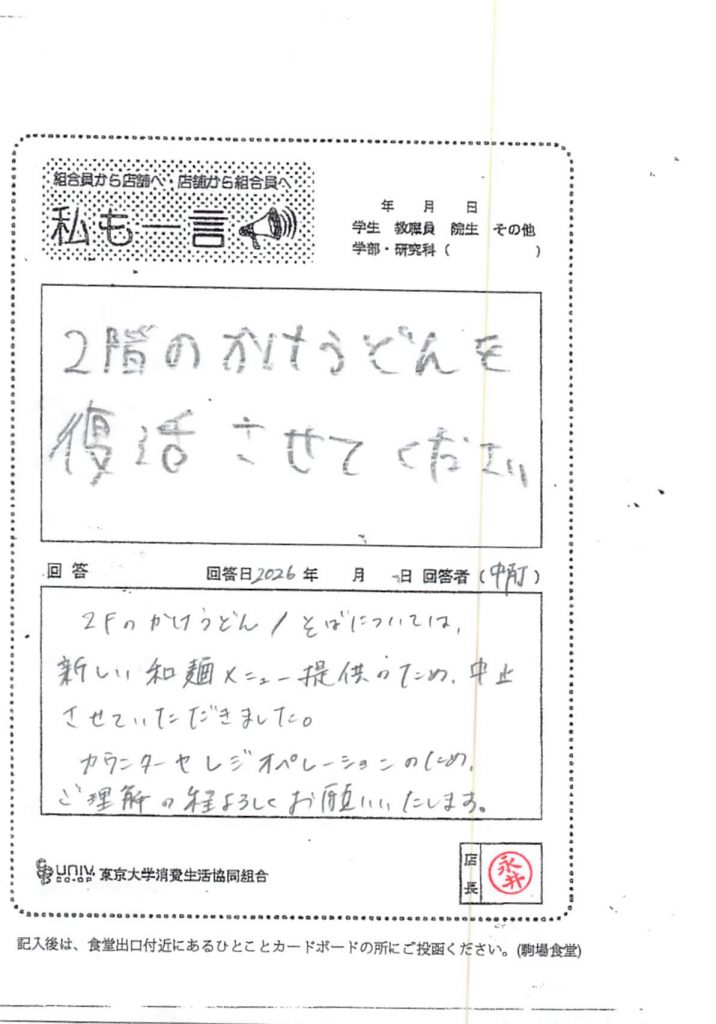 組合員から店舗へ・店舗から組合員へ
私も一言
年 月 日
学生 教職員 院生 その他
学部・研究科( )
2階のかけうどんを
復活させてください
回答 回答日2026年 月 日 回答者(中町)
2Fのかけうどん/そばについては、
新しい和麺メニュー提供のため、中止
させていただきました。
カウンターセレジオペレーションのため、
ご理解の程よろしくお願いいたします。
UNIV.
CO-OP 東京大学消費生活協同組合
店長 永井
記入後は、食堂出口付近にあるひとことカードボードの所にご投函ください。(駒場食堂)